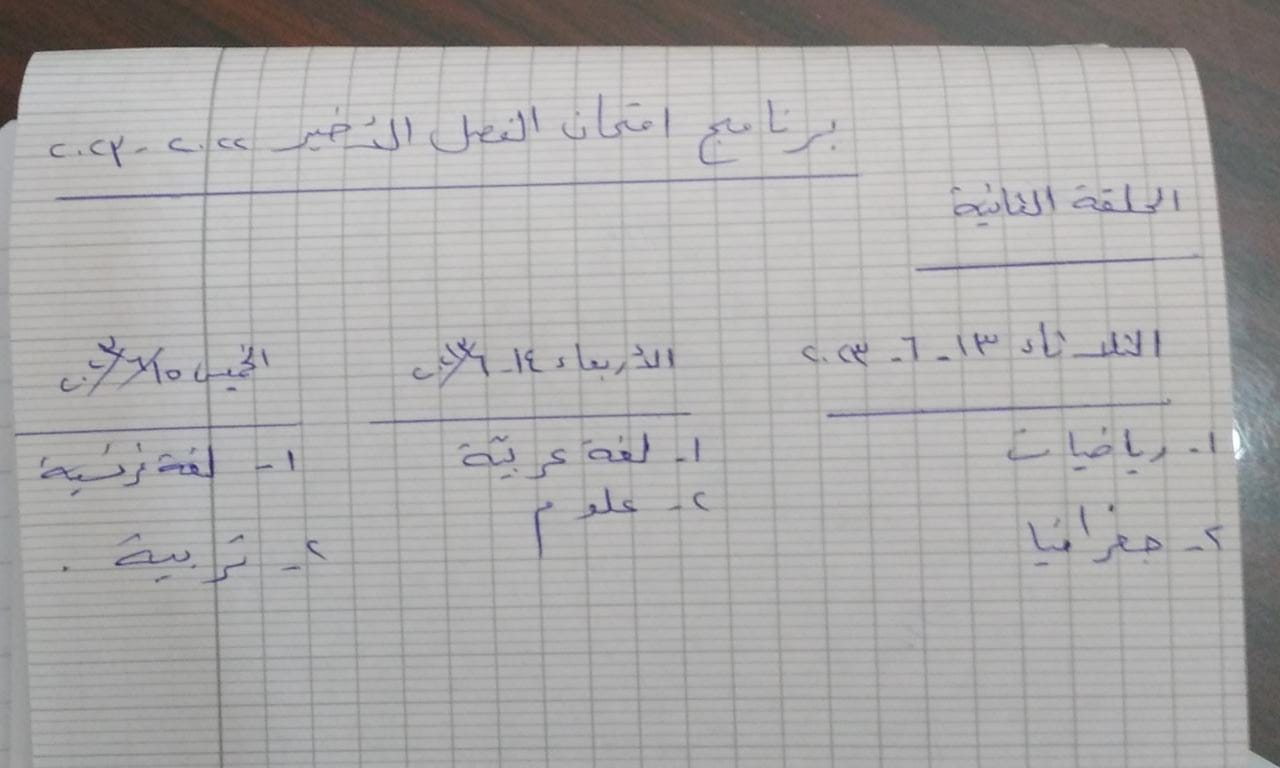 برنامج امتحان الفصل الأخير ٢٠٢٢ - ٢٠٢٣
الحلقة الثانية
الثلاثاء ١٣ - ٦ - ٢٠٢٣
١ - رياضيات
٢ - جغرافيا
الأربعاء ١٤ - ٦
١ - لغة عربيّة
٢ - علوم
الخميس ١٥/٦/٢٠٢٣
١ - لغة فرنسية
٢ - تربية .